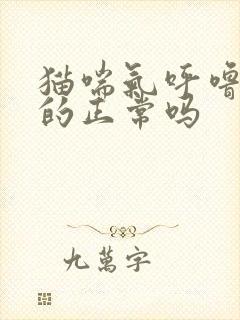 猫喘氣呼嚕
的正常吗
九萬字